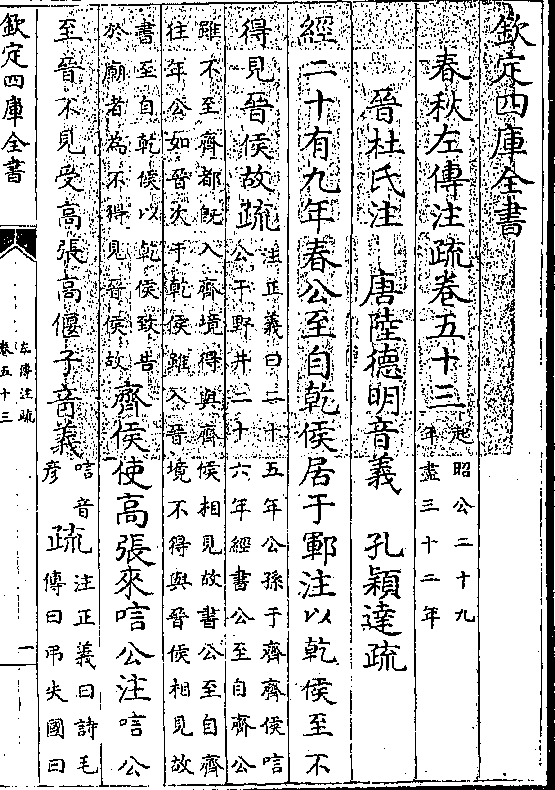 欽定四庫全書
春秋左傳注疏卷五十三
起昭公二十九
年盡三十二年
晉杜氏注　唐陸德明音義　孔穎達疏
經二十有九年春公至自乾侯居于鄆注以乾侯至不
得見晉侯故疏
注正義曰二十五年公孫于齊齊侯唁
公于野井二十六年經書公至自齊公
雖不至齊都既入齊境得與齊侯相見故書公至自齊
往年公如晉次于乾侯雖入晉境不得與晉侯相見故
書至自乾侯以乾侯致告
於廟者為不得見晉侯故
齊侯使高張來唁公注唁公
至晉不見受高張高偃子音義
唁音
彥
疏
注正義曰詩毛
傳曰弔失國曰
欽定四庫全書
左傳注疏
卷五十三
一